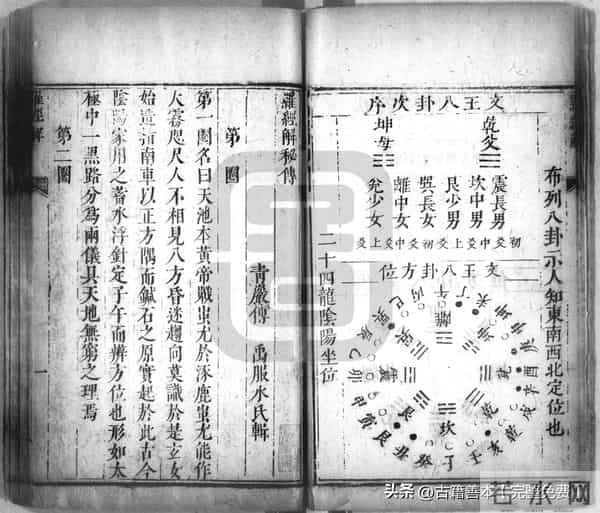 布列八卦示人知東南西北定位也
文王八卦次序
乾父
坤母
震長男
坎中男
艮少男
巽長女
離中女
兌少女
初爻 中爻 上爻 初爻 中爻 上爻
文王八卦方位
離
坎
乾
艮
二十四龍陰陽坐位
羅經解秘傳
青巖傳 禹服水氏輯
第一圈
第一圈名曰天池本黃帝戰蚩尤於涿鹿蚩尤能作
大霧咫尺人不相見八方昏迷趨向莫識於是玄女
始造指南車以正方隅而鍼石之原實起於此古今
陰陽家用之蓄水浮針定子午而辨方位也形如太
極中一黑路分爲兩儀具天地無窮之理焉
第二圈
羅經解
一
头条 @古籍善本
完整免费